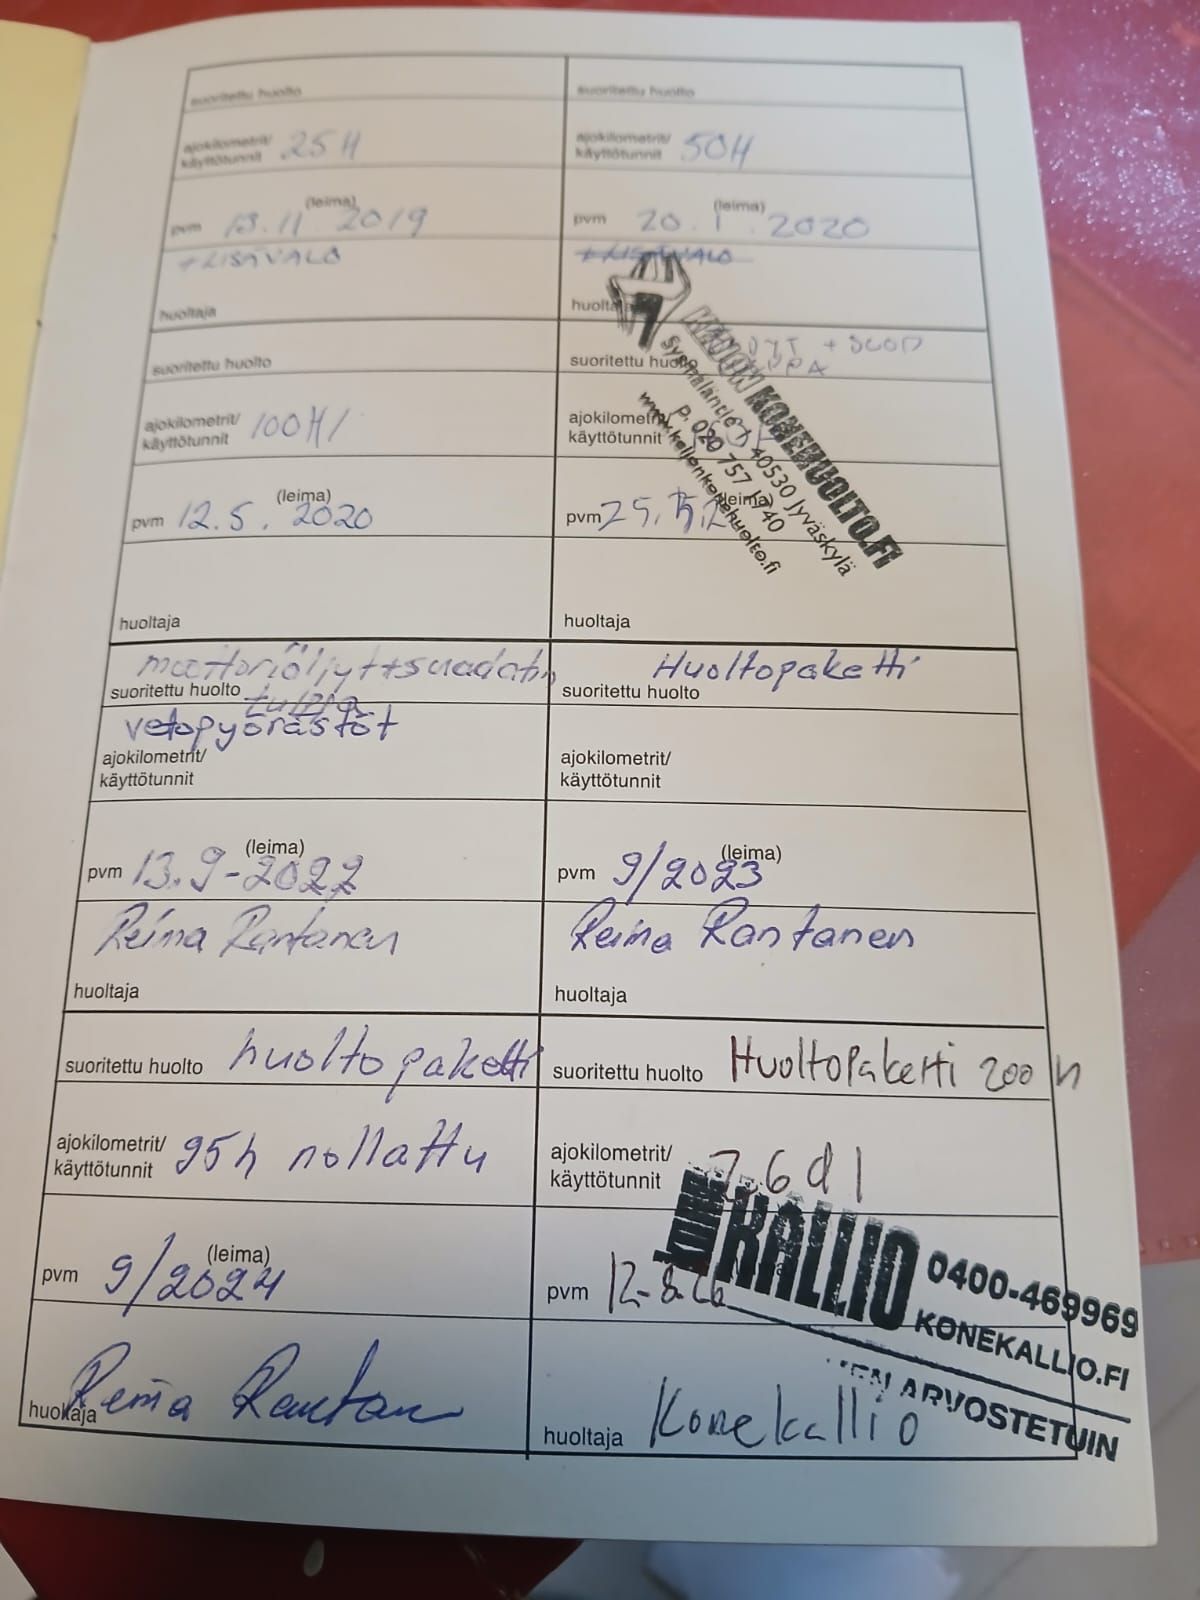 suoritettu huolto
ajokilometrit/
käyttötunnit 25H
(leima)
pvm 13.11.2019
+LISÄVALO
huoltaja
suoritettu huolto
ajokilometrit/
käyttötunnit 50H
(leima)
pvm 20.1.2020
+LISÄVALO
huoltaja
suoritettu huolto
ajokilometrit/
käyttötunnit 100H/
(leima)
pvm 12.5.2020
huoltaja
suoritettu huolto
ajokilometrit/
käyttötunnit
(leima)
pvm 25.
huoltaja
KELJON KONEHUOLTO.FI
40530 Jyväskylä
P. 020 757 1740
www.keljonkonehuolto.fi
moottoriöljyt+suodatin
suoritettu huolto tulppa
vetopyörästöt
ajokilometrit/
käyttötunnit
(leima)
pvm 13.9-2022
Reima Rantanen
huoltaja
Huoltopaketti
suoritettu huolto
ajokilometrit/
käyttötunnit
(leima)
pvm 9/2023
Reima Rantanen
huoltaja
suoritettu huolto huoltopaketti
ajokilometrit/
käyttötunnit 95h nollattu
(leima)
pvm 9/2024
Reima Rantanen
huoltaja
suoritettu huolto Huoltopaketti 200 h
ajokilometrit/
käyttötunnit 7.6dl
pvm
KONE KALLIO
0400-469969
KONEKALLIO.FI
ARVOSTETUIN
huoltaja Konekallio